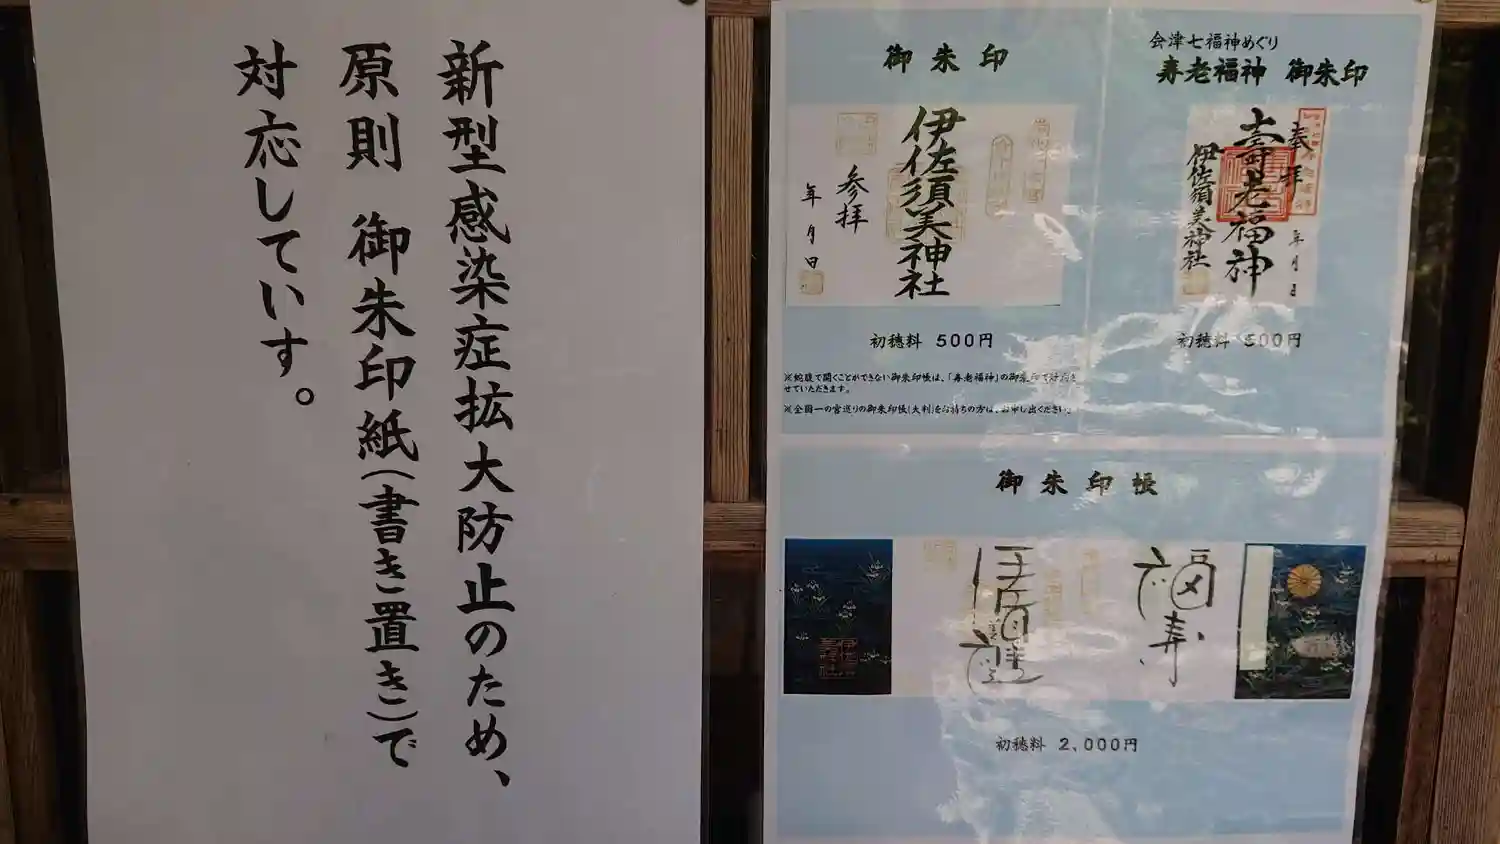 新型感染症拡大防止のため、
原則 御朱印紙(書き置き)で
対応しています。
御朱印
伊佐須美神社
参拝
年月日
初穂料 500円
※蛇腹で開くことができない御朱印帳は、「寿老福神」の御朱印で対応さ
せていただきます。
※全国一の宮巡りの御朱印帳(大判)をお持ちの方は、お申し出ください。
会津七福神めぐり
寿老福神 御朱印
奉拝
壽老福神
伊佐須美神社
年月日
初穂料 500円
御朱印帳
福寿
初穂料 2,000円